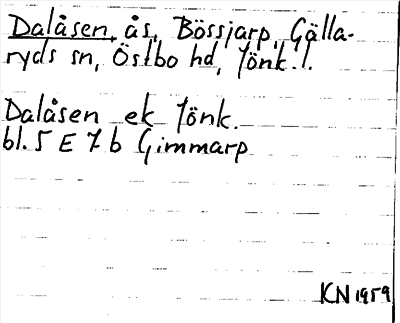 Dalåsen, ås, Bössjarp, Gälla-
ryds sn, Östbo hd, Jönk. l.
Dalåsen ek Jönk.
bl. 5 E 7 b Gimmarp
KN 1959